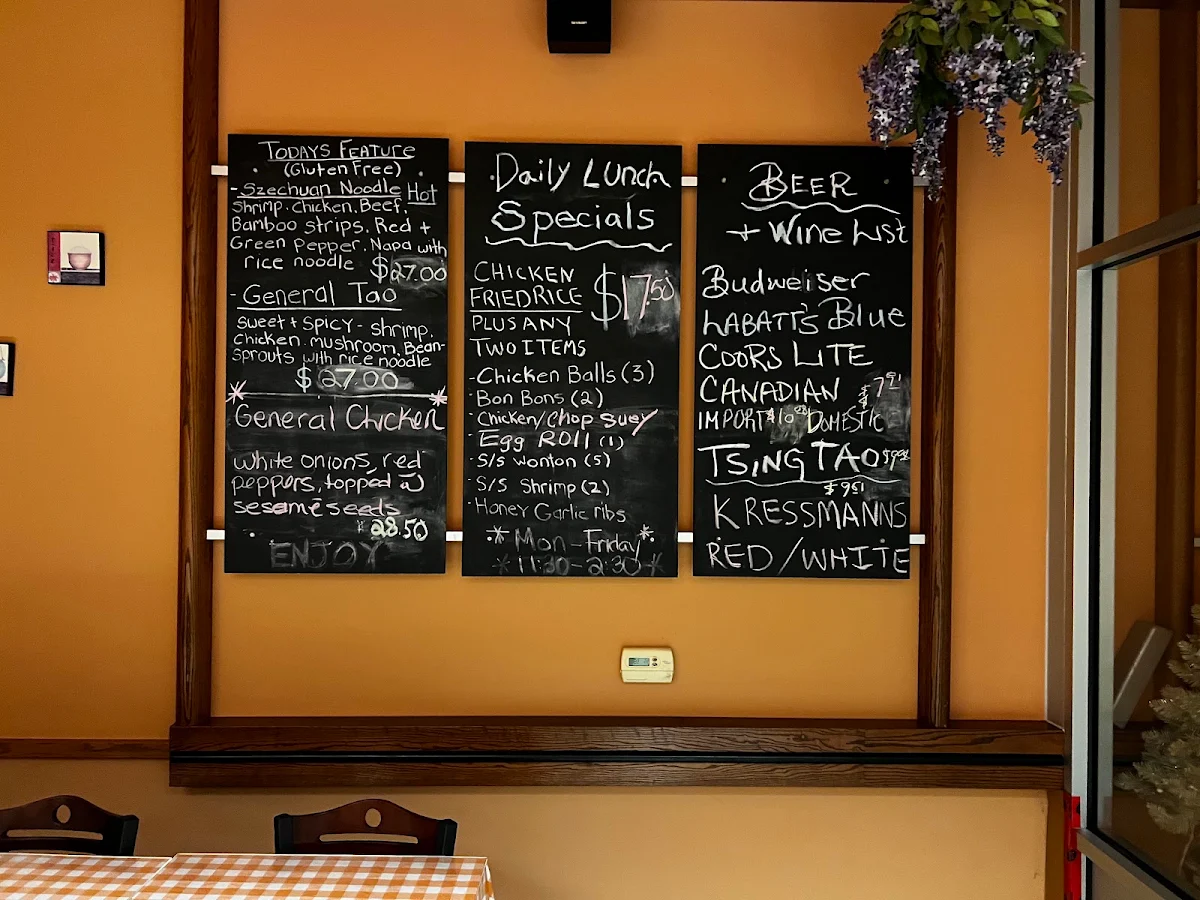 TODAYS FEATURE
(Gluten Free)
- Szechuan Noodle Hot
Shrimp. Chicken, Beef,
Bamboo strips, Red +
Green Pepper, Napa with
rice noodle $27.00
- General Tao
Sweet + Spicy - shrimp,
Chicken. mushroom, Bean-
Sprouts with rice noodle
$27.00
General Chicken
white onions, red
peppers, topped w
sesame seeds
28.50
ENJOY
Daily Lunch
Specials
CHICKEN
FRIED RICE $17.50
PLUS ANY
TWO ITEMS
- Chicken Balls (3)
- Bon Bons (2)
- Chicken/Chop Suey
- Egg Roll (1)
- S/S Wonton (5)
- S/S Shrimp (2)
- Honey Garlic ribs
* Mon - Friday *
* 11:30 - 2:30 *
BEER
+ Wine List
Budweiser
LABATT'S Blue
COORS LITE
CANADIAN
IMPORT DOMESTIC
TSING TAO
$9.51
KRESSMANNS
RED/WHITE